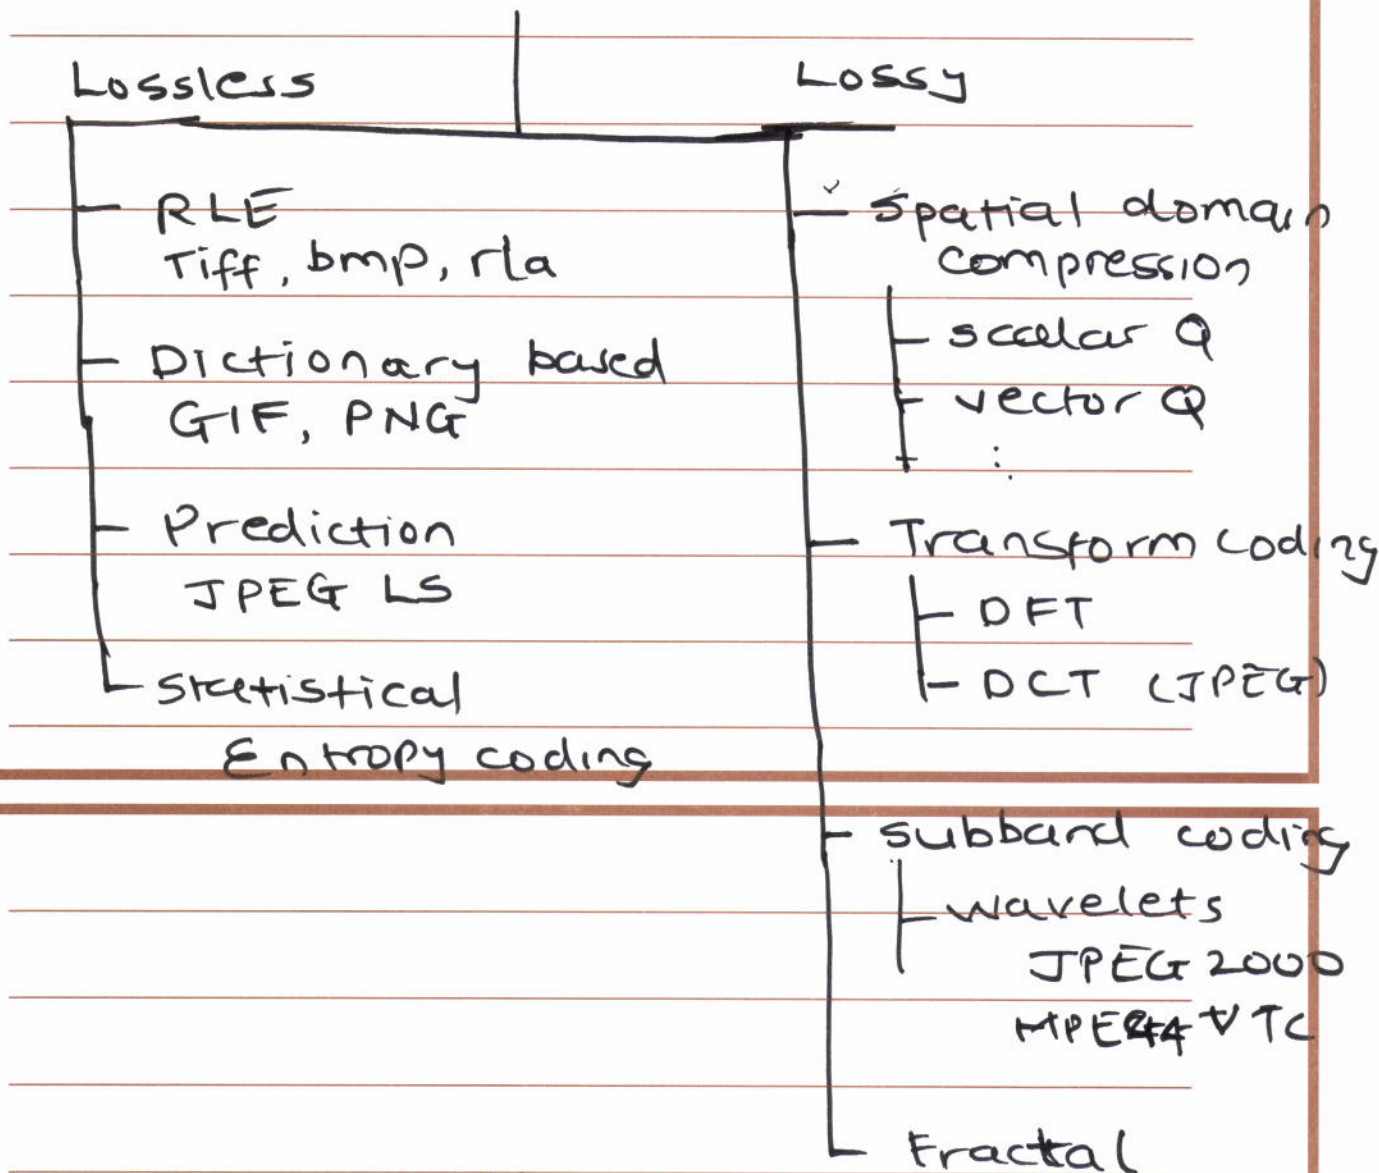 Lossless
RLE
Tiff, bmp, rla
Dictionary based
GIF, PNG
Prediction
JPEG LS
Statistical
Entropy coding
Lossy
Spatial domain
compression
scalar Q
vector Q
:
Transform coding
DFT
DCT (JPEG)
subband coding
wavelets
JPEG 2000
MPEG4 VTC
Fractal